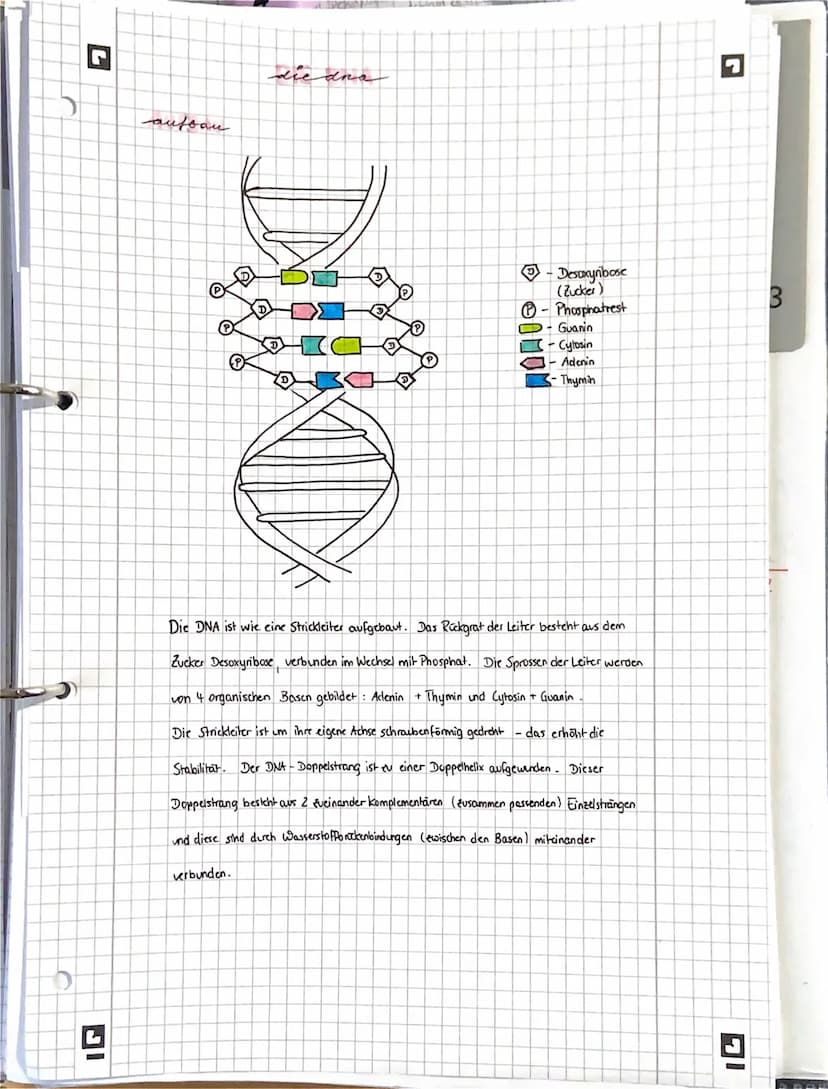 die dna
aufbau
D
D
P
P
D
D
P
P
D
D
P
P
D
D
D - Desoxyribose
(Zucker)
P - Phosphatrest
- Guanin
- Cytosin
- Adenin
- Thymin
3
Die DNA ist wie eine Strickleiter aufgebaut. Das Rückgrat der Leiter besteht aus dem
Zucker Desoxyribose, verbunden im Wechsel mit Phosphat. Die Sprossen der Leiter werden
von 4 organischen Basen gebildet: Adenin + Thymin und Cytosin + Guanin.
Die Strickleiter ist um ihre eigene Achse schraubenförmig gedreht - das erhöht die
Stabilität. Der DNA-Doppelstrang ist zu einer Doppelhelix aufgewunden. Dieser
Doppelstrang besteht aus 2 zueinander komplementären (zusammen passenden) Einzelsträngen
und diese sind durch Wasserstoffbrückenbindungen (zwischen den Basen) miteinander
verbunden.